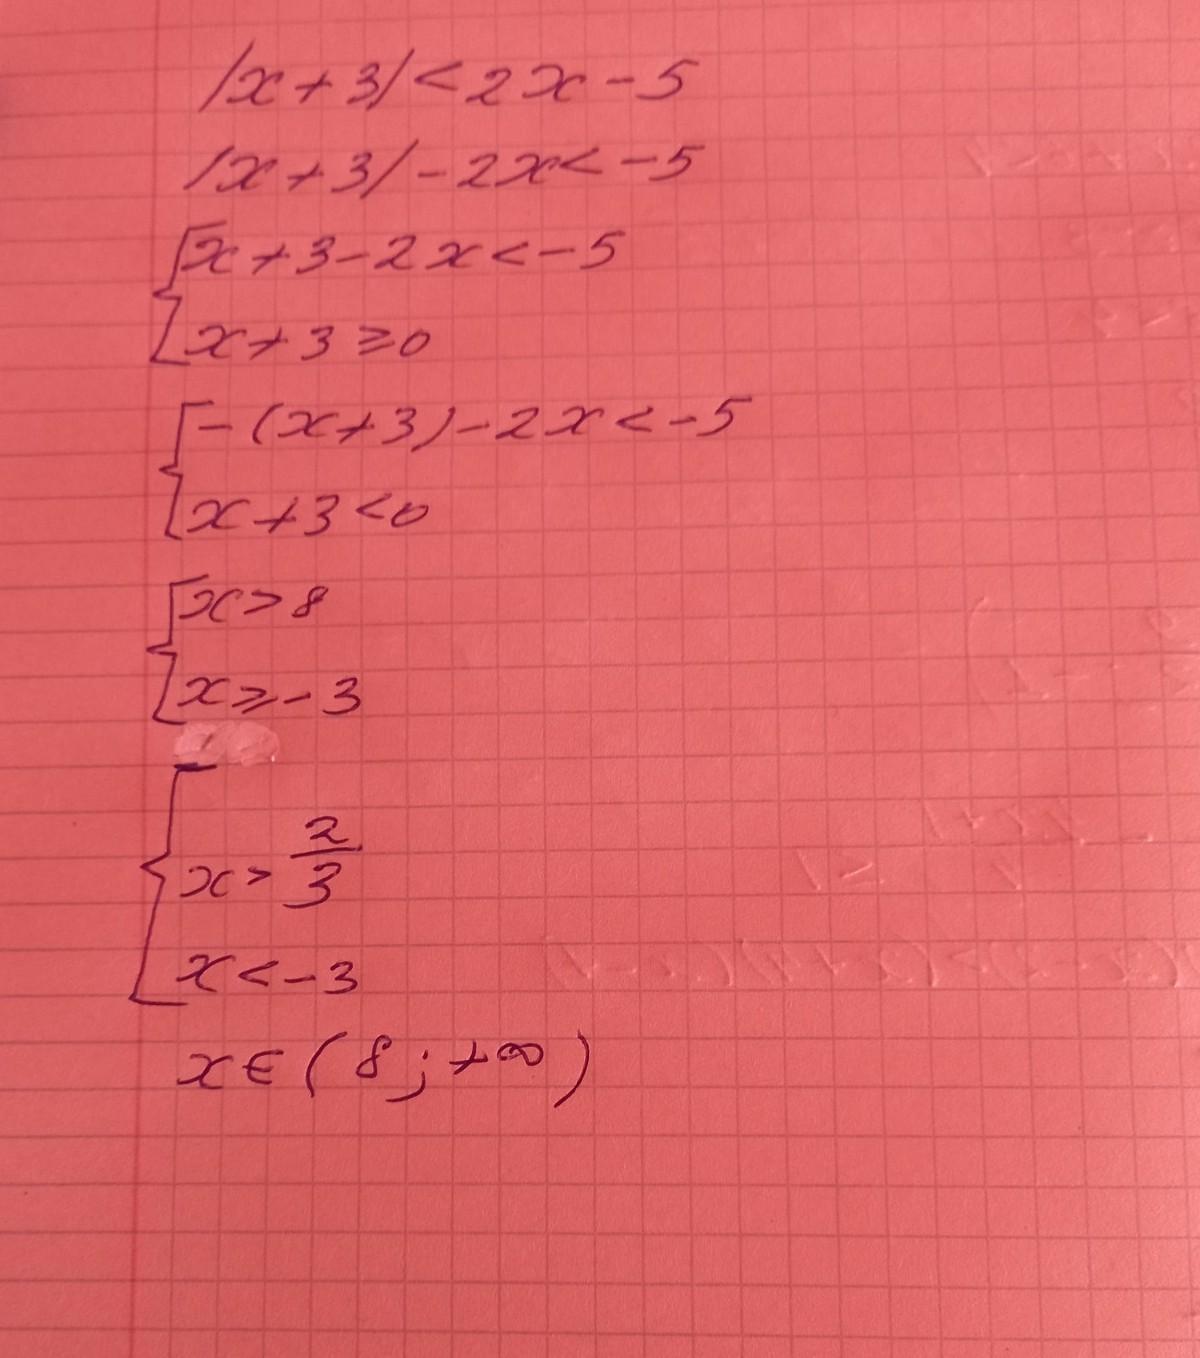 |x+3|<2x-5
|x+3|-2x<-5
x+3-2x<-5
x+3≥0
-(x+3)-2x<-5
x+3<0
x>8
x≥-3
x>2/3
x<-3
x∈(8;+∞)